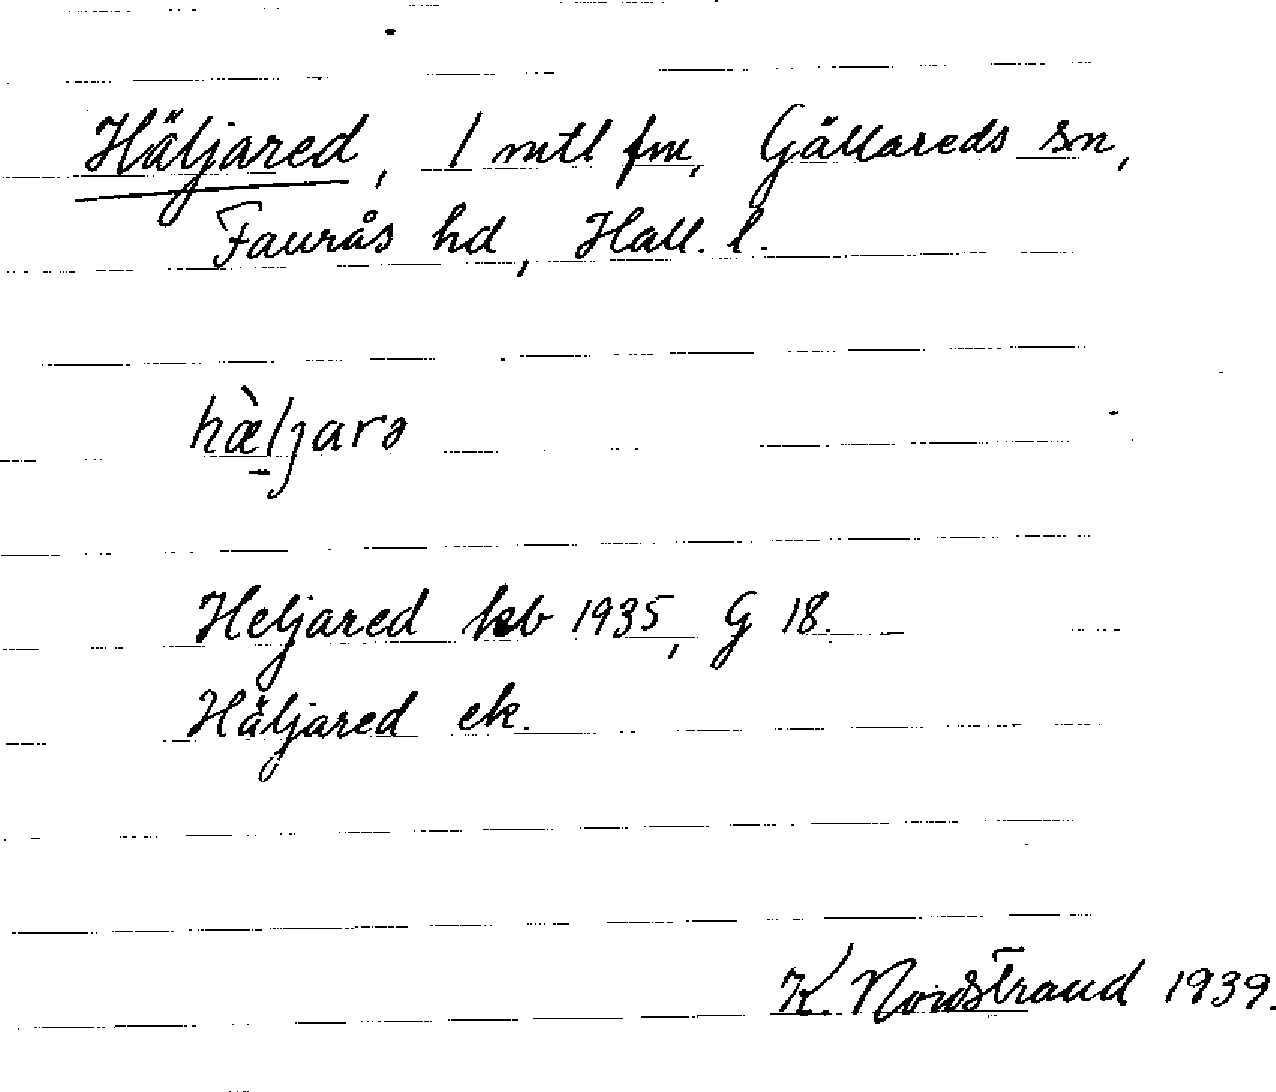 Häljared, 1 mtl fm, Gällareds sn,
Faurås hd, Hall. l.
hæ̀ljarə
Heljared kb 1935, G 18.
Häljared ek.
K. Nordstrand 1939.